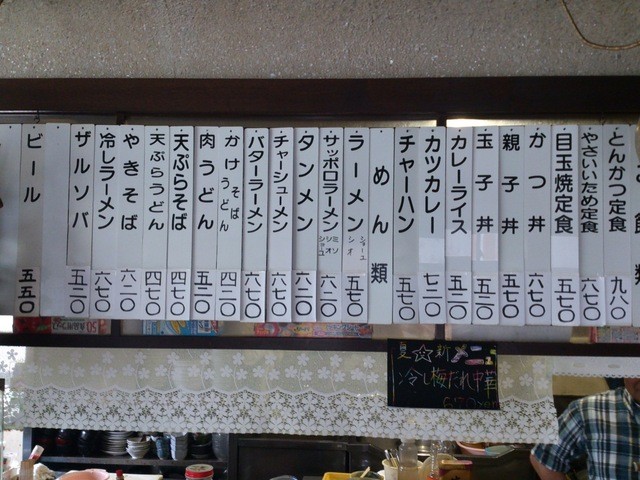 とんかつ定食 九八〇
やさいため定食 六七〇
目玉焼定食 五七〇
かつ丼 六七〇
親子丼 五七〇
玉子丼 五二〇
カレーライス 五二〇
カツカレー 七二〇
チャーハン 五七〇
めん類
ラーメン ショーユ シオ 五七〇
サッポロラーメン ミソ シオ ショーユ 六二〇
タンメン 六二〇
チャーシューメン 六七〇
バターラーメン 六七〇
かけそばうどん 四二〇
肉うどん 五二〇
天ぷらそば 四七〇
天ぷらうどん 四七〇
やきそば 六二〇
冷しラーメン 六七〇
ザルソバ 五二〇
ビール 五五〇
夏☆新メニュー
冷し梅だれ中華
670